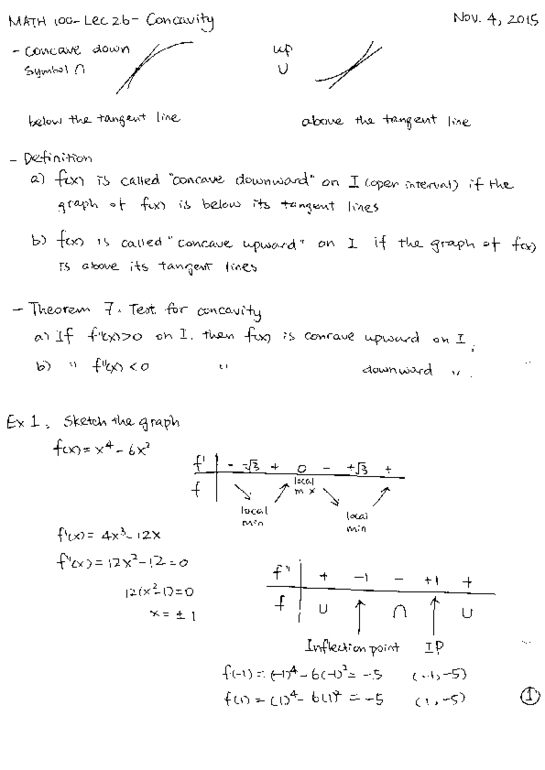 MATH 100-Lec 26- Concavity Nov. 4, 2015
- Concave down up
Symbol ∩ ∪
below the tangent line above the tangent line
- Definition
a) f(x) is called "concave downward" on I (open interval) if the
graph of f(x) is below its tangent lines
b) f(x) is called "concave upward" on I if the graph of f(x)
is above its tangent lines
- Theorem 7. Test for concavity
a) If f''(x)>0 on I. then f(x) is concave upward on I.
b) " f''(x) <0 " downward ".
Ex 1. Sketch the graph
f(x) = x⁴ - 6x²
f' - -√3 + 0 - +√3 +
f local min local max local min
f'(x) = 4x³ - 12x
f''(x) = 12x² - 12 = 0
12(x²-1) = 0
x = ± 1
f'' + -1 - +1 +
f ∪ ↑ ∩ ↑ ∪
Inflection point IP
f(-1) = (-1)⁴ - 6(-1)² = -5 (-1, -5)
f(1) = (1)⁴ - 6(1)² = -5 (1, -5)
①